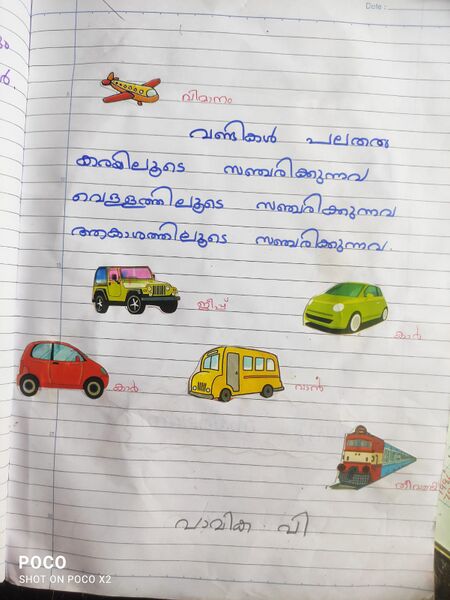 Date :
വിമാനം
വണ്ടികൾ പലതരം
കരയിലൂടെ സഞ്ചരിക്കുന്നവ
വെള്ളത്തിലൂടെ സഞ്ചരിക്കുന്നവ
ആകാശത്തിലൂടെ സഞ്ചരിക്കുന്നവ.
ജീപ്പ്
കാർ
കാർ
വാൻ
തീവണ്ടി
വി
POCO
SHOT ON POCO X2